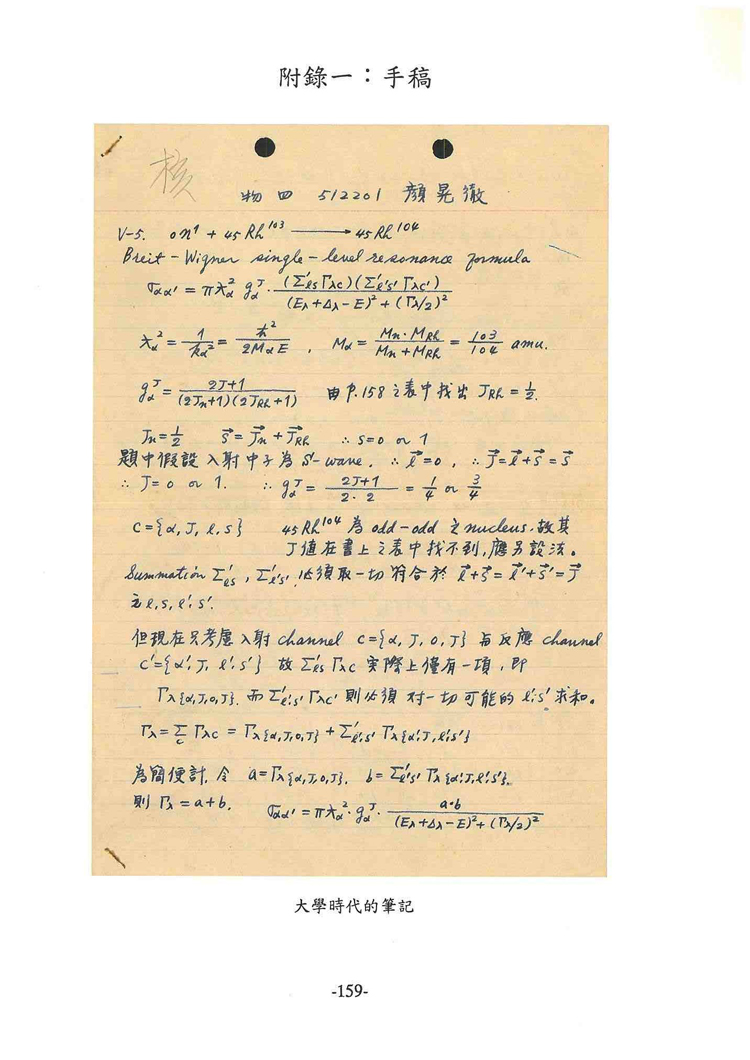 附錄一：手稿
核
物四 512201 顏晃徹
V-5. ₀n¹ + ₄₅Rh¹⁰³ ⟶ ₄₅Rh¹⁰⁴
Breit-Wigner single-level resonance formula
σαα' = πƛα² gαᴶ · (Σ'ℓs Γλc)(Σ'ℓ's' Γλc') / ((Eλ+Δλ−E)² + (Γλ/2)²)
ƛα² = 1/kα² = ħ²/2MαE , Mα = Mn·MRh/(Mn+MRh) = 103/104 amu.
gαᴶ = (2J+1)/((2Jn+1)(2JRh+1)) 由P.158之表中找出 JRh = 1/2.
Jn = 1/2 s⃗ = J⃗n + J⃗Rh ∴ s=0 or 1
題中假設入射中子為 S-wave. ∴ ℓ⃗=0, ∴ J⃗=ℓ⃗+s⃗=s⃗
∴ J=0 or 1. ∴ gαᴶ = (2J+1)/(2·2) = 1/4 or 3/4
c={α, J, ℓ, s} ₄₅Rh¹⁰⁴ 為 odd-odd 之 nucleus. 故其
J值在書上之表中找不到,應另設法。
Summation Σ'ℓs, Σ'ℓ's' 必須取一切符合於 ℓ⃗+s⃗=ℓ⃗'+s⃗'=J⃗
之 ℓ, s, ℓ', s'.
但現在只考慮入射 channel c={α, J, 0, J} 與反應 channel
c'={α', J, ℓ', s'} 故 Σ'ℓs Γλc 實際上僅有一項,即
Γλ{α,J,0,J}. 而 Σ'ℓ's' Γλc' 則必須對一切可能的 ℓ', s' 求和。
Γλ = Σc Γλc = Γλ{α,J,0,J} + Σ'ℓ's' Γλ{α',J,ℓ',s'}
為簡便計, 令 a=Γλ{α,J,0,J}, b=Σ'ℓ's' Γλ{α',J,ℓ',s'}.
則 Γλ=a+b. σαα' = πƛα² · gαᴶ · a·b / ((Eλ+Δλ−E)² + (Γλ/2)²)
大學時代的筆記
-159-